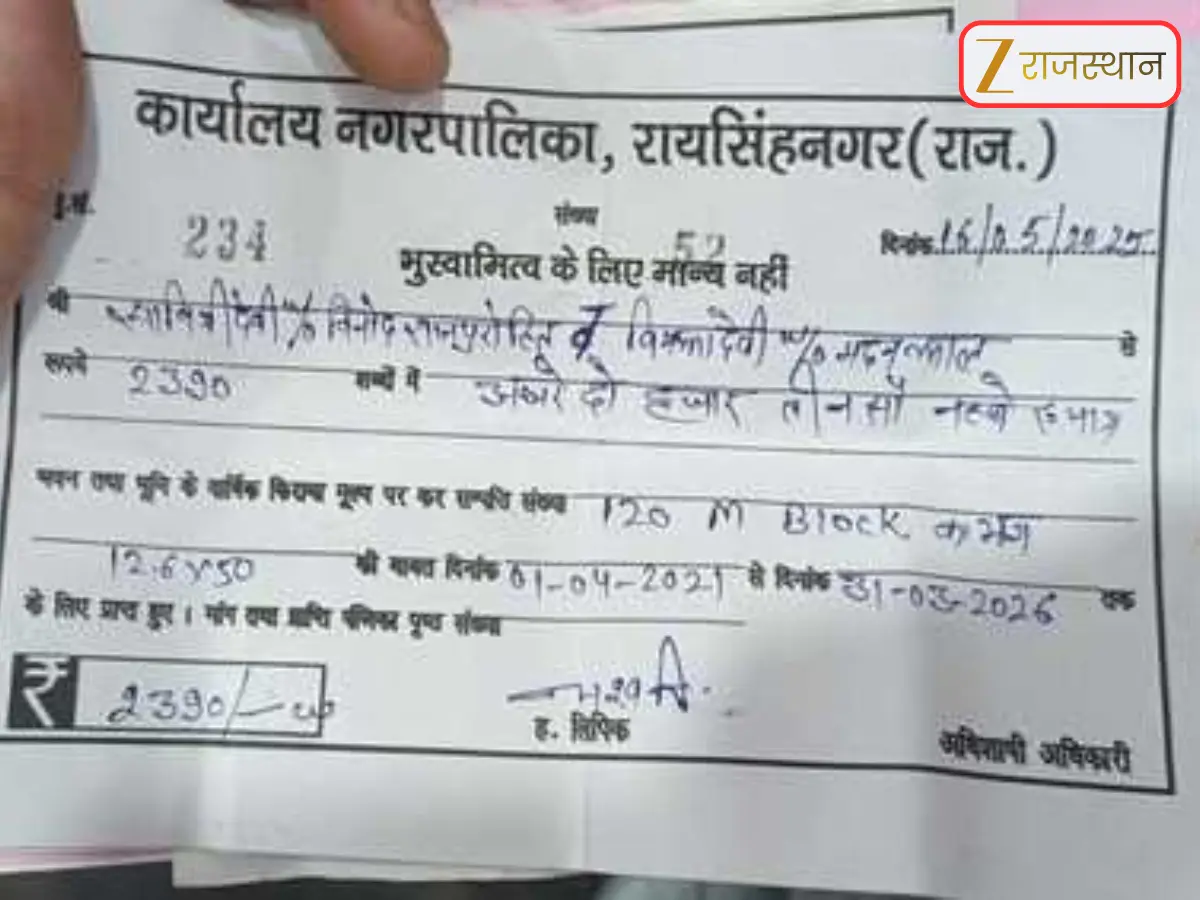 Z राजस्थान
कार्यालय नगरपालिका, रायसिंहनगर(राज.)
बु.सं. 234 संख्या 52 दिनांक 16/05/2025
भुस्वामित्व के लिए मान्य नहीं
श्री सावित्रीदेवी w/o विनोद राजपुरोहित व विमलादेवी w/o मदनलाल से
रूपये 2390 शब्दों में अक्षरे दो हजार तीन सौ नब्बे रु मात्र
भवन तथा भूमि के वार्षिक किराया मूल्य पर कर सम्पत्ति संख्या 120 M Block
12.6x50 की बाबत दिनांक 01-04-2021 से दिनांक 31-03-2026 तक
के लिए प्राप्त हुए । मांग तथा प्राप्ति पंजिका पृष्ठ संख्या
₹ 2390/-
ह. लिपिक
अधिशाषी अधिकारी